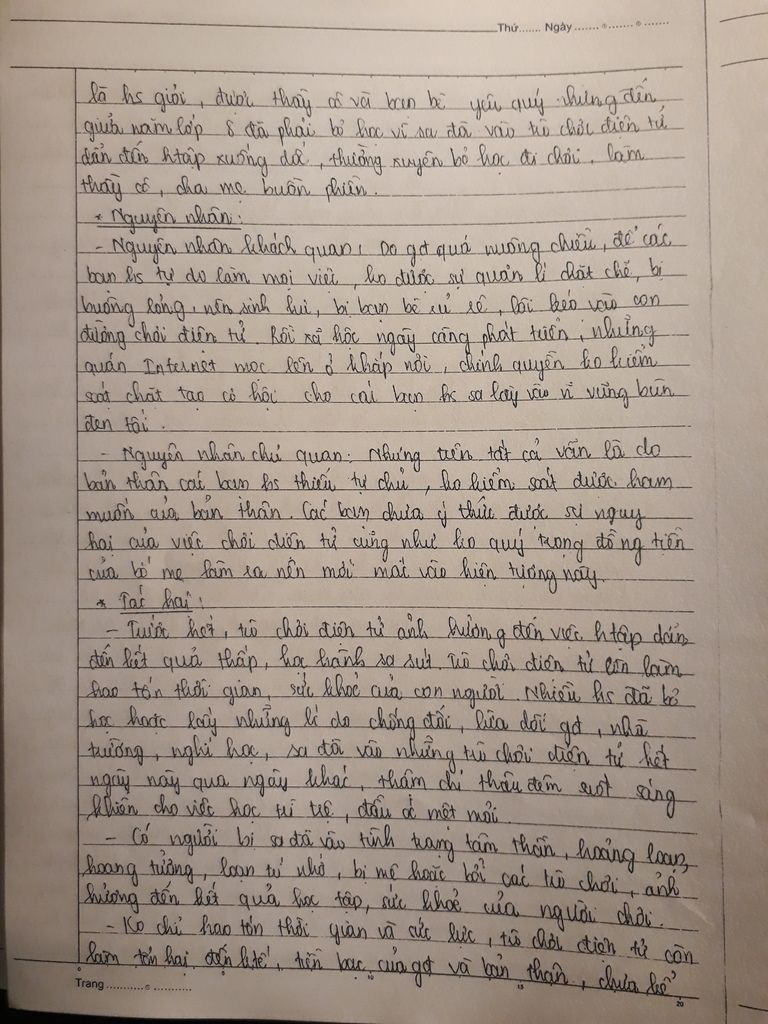 Thứ....... Ngày ....... ® ....... ® .......
là hs giỏi, được thầy cô và bạn bè yêu quý nhưng đến
giữa năm lớp 8 đã phải bỏ học vì sa đà vào trò chơi điện tử
dẫn đến htập xuống dốc, thường xuyên bỏ học đi chơi, làm
thầy cô, cha mẹ buồn phiền.
* Nguyên nhân:
- Nguyên nhân khách quan: Do gđ quá nuông chiều, để các
bạn hs tự do làm mọi việc, ko được sự quản lí chặt chẽ, bị
buông lỏng, nên sinh hư, bị bạn bè rủ rê, lôi kéo vào con
đường chơi điện tử. Rồi xã hội ngày càng phát triển, những
quán Internet mọc lên ở khắp nơi, chính quyền ko kiểm
soát chặt tạo cơ hội cho các bạn hs sa lầy vào vũng bùn
đen tối.
- Nguyên nhân chủ quan: Nhưng trên tất cả vẫn là do
bản thân các bạn hs thiếu tự chủ, ko kiểm soát được ham
muốn của bản thân. Các bạn chưa ý thức được sự nguy
hại của việc chơi điện tử cũng như ko quý trọng đồng tiền
của bố mẹ làm ra nên mới mắc vào hiện tượng này.
* Tác hại:
- Trước hết, trò chơi điện tử ảnh hưởng đến việc htập dẫn
đến kết quả thấp, học hành sa sút. Trò chơi điện tử còn làm
hao tốn thời gian, sức khoẻ của con người. Nhiều hs đã bỏ
học hoặc lấy những lí do chống đối, lừa dối gđ, nhà
trường, nghỉ học, sa đà vào những trò chơi điện tử hết
ngày này qua ngày khác, thậm chí thâu đêm suốt sáng
khiến cho việc học trì trệ, đầu óc mệt mỏi.
- Có người bị sa đà vào tình trạng tâm thần, hoảng loạn,
hoang tưởng, loạn trí nhớ, bị mê hoặc bởi các trò chơi, ảnh
hưởng đến kết quả học tập, sức khoẻ của người chơi.
- Ko chỉ hao tốn thời gian và sức lực, trò chơi điện tử còn
làm tổn hại đến ktế, tiền bạc của gđ và bản thân, chưa kể
Trang ........... ® ...........
0 5 10 15 20